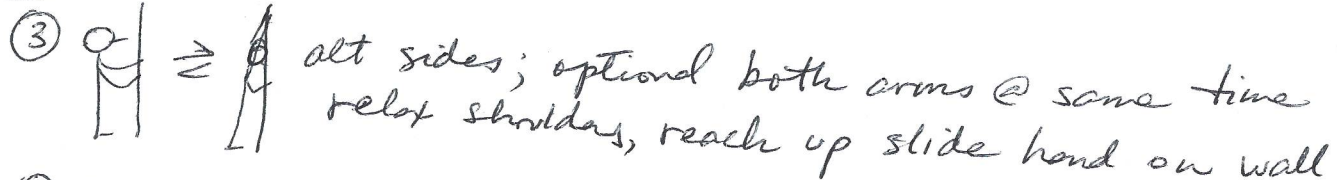 ③ ⇌ alt sides; optional both arms @ same time
relax shoulders, reach up slide hand on wall